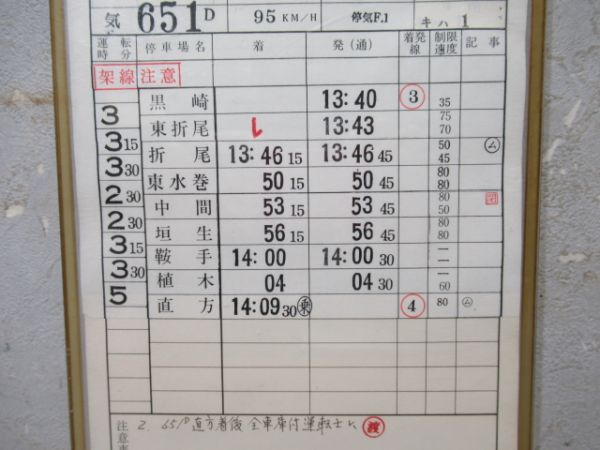 気 651D 95 KM/H 停気F.1 キハ 1
運転時分 停車場名 着 発(通) 着発線 制限速度 記事
架線注意
黒崎 13:40 ③ 35
3
東折尾 レ 13:43 75 70
3 15
折尾 13:46 15 13:46 45 50 45 ㋰
3 30
東水巻 50 15 50 45 80 80
2 30
中間 53 15 53 45 80 50 閉
2 30
垣生 56 15 56 45 80 80
3 15
鞍手 14:00 14:00 30 — —
3 30
植木 04 04 30 — 60
5
直方 14:09 30 乗 ④ 80 ㋰
注意事
2. 651D 直方着後 全車庫付運転士へ 渡